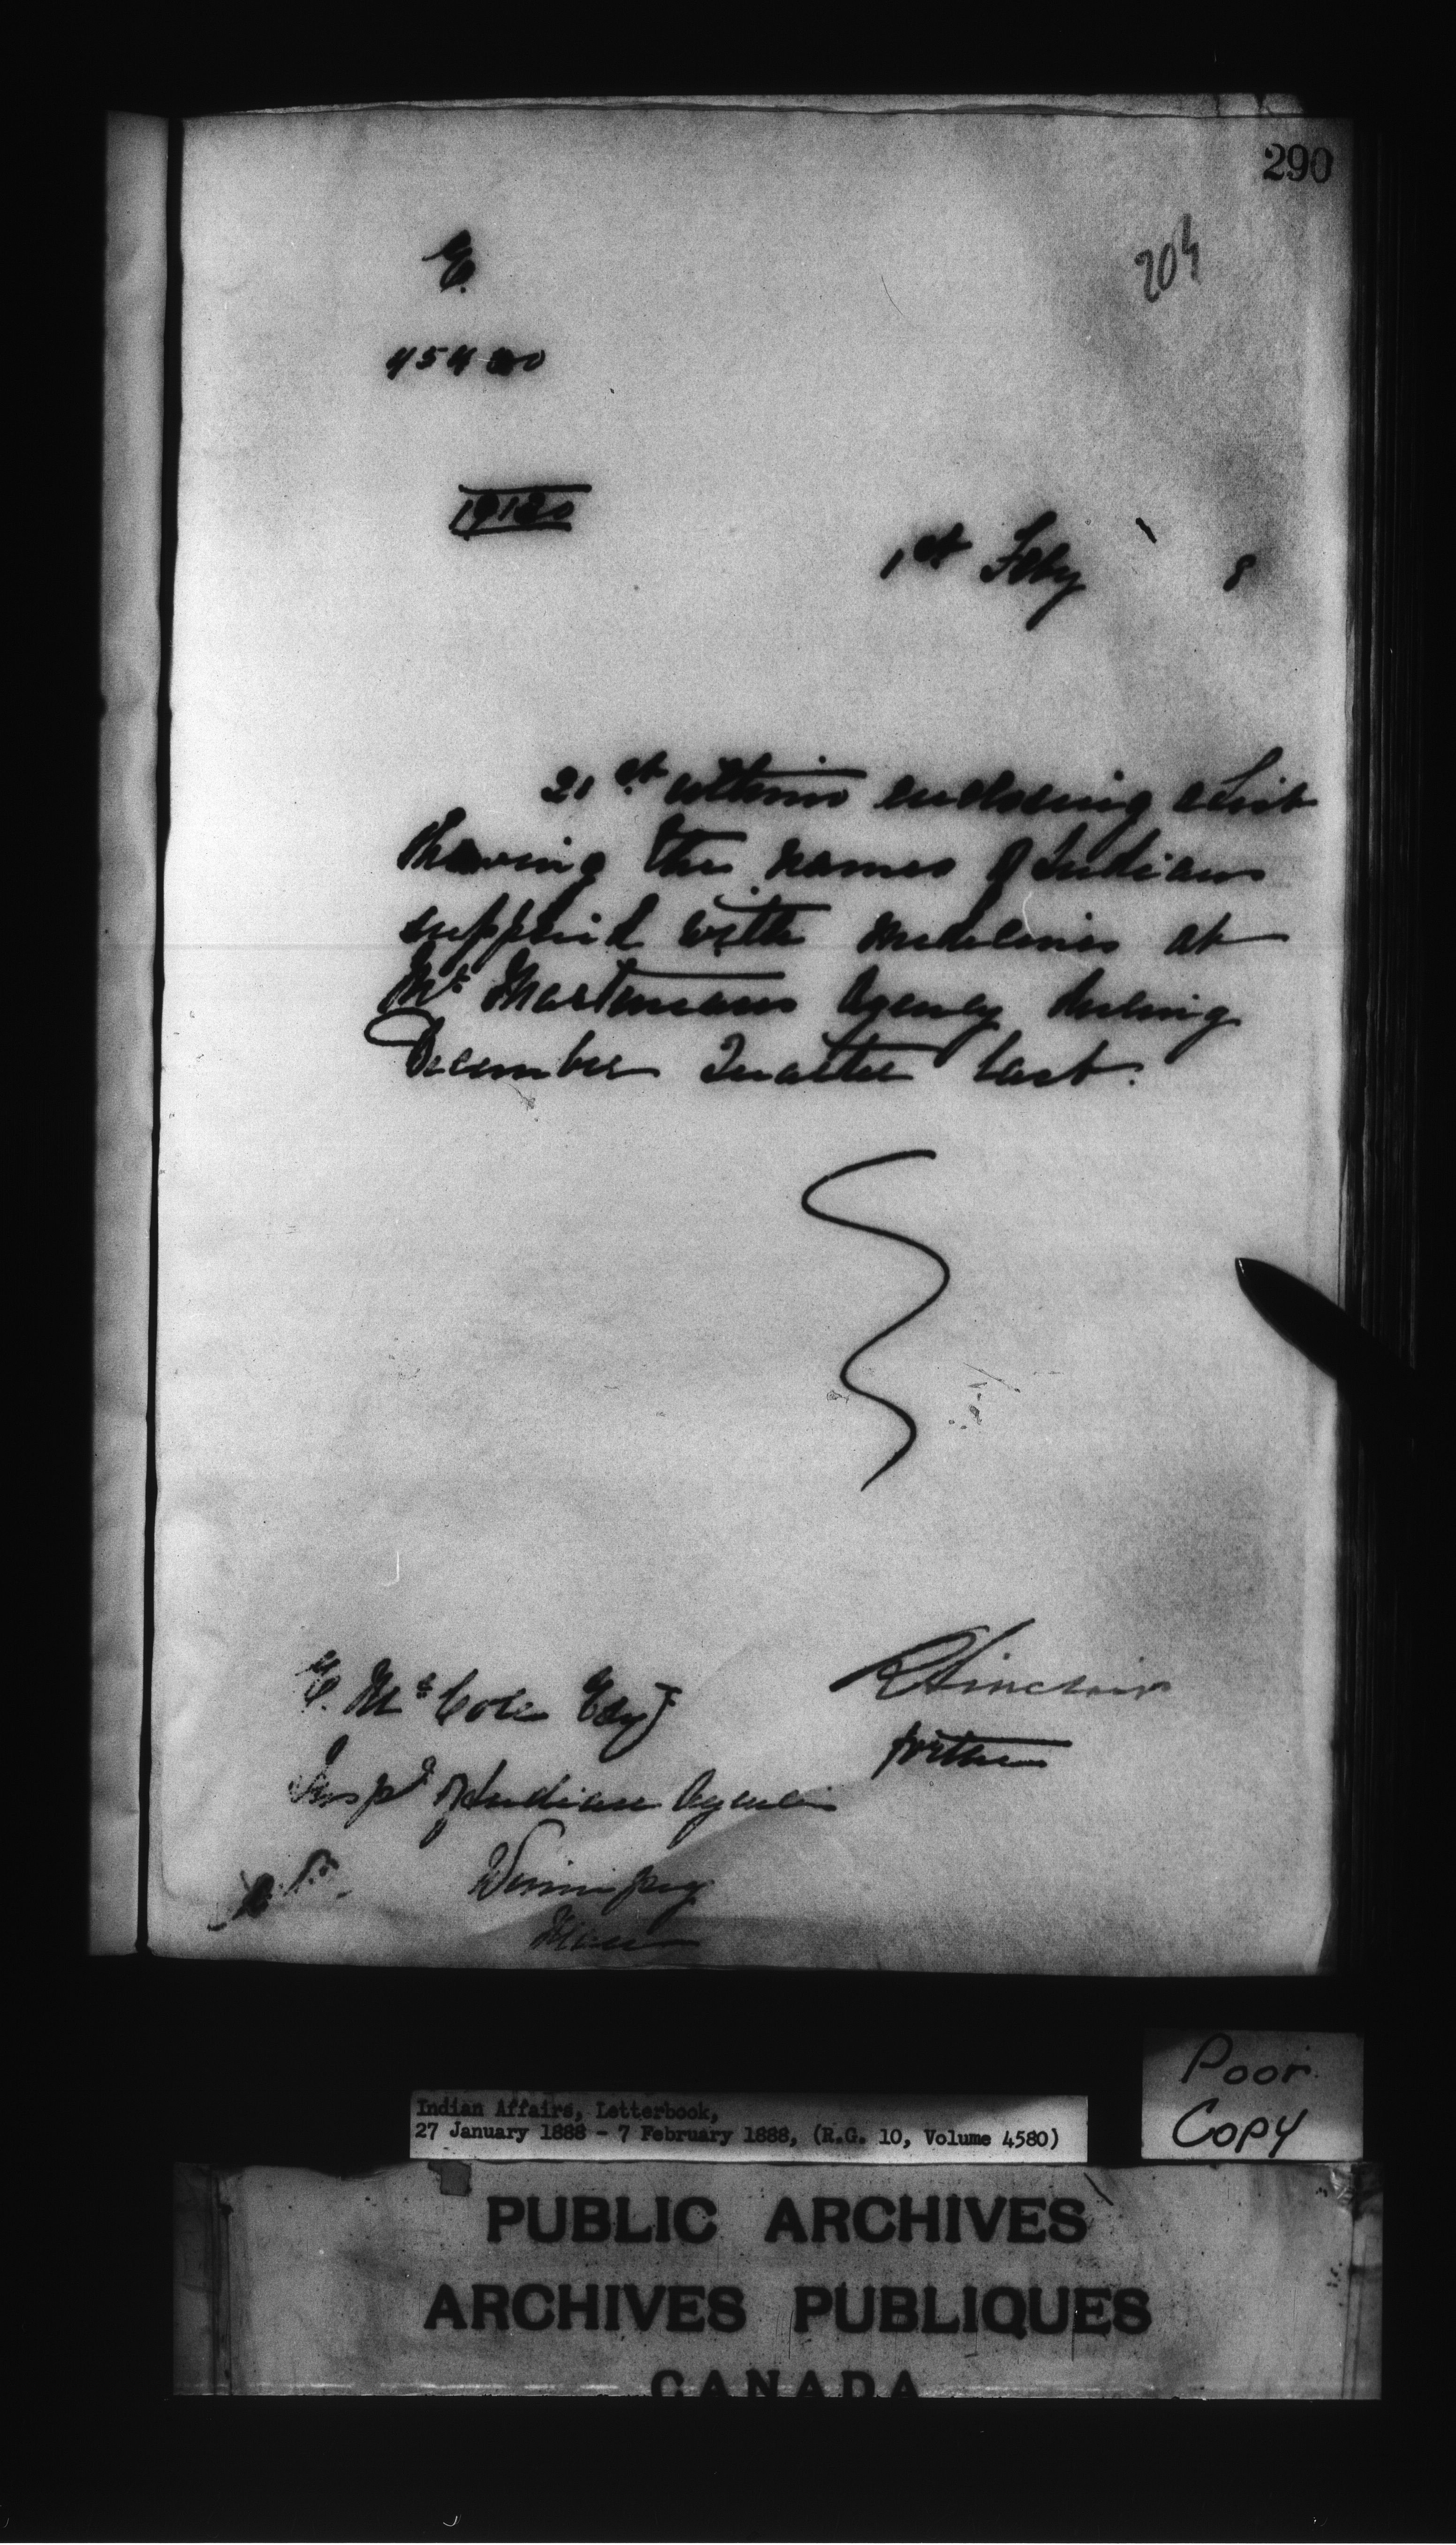 290
204
E.
19130
1st Feby 8
21st ultimo enclosing a List
showing the names of Indians
supplied with medicines at
Mr Martineaus Agency during
December Quarter last.
E. McColl Esq
Inspr of Indian Agencies
Winnipeg
Man
R Sinclair
for the
Poor
Copy
Indian Affairs, Letterbook,
27 January 1888 - 7 February 1888, (R.G. 10, Volume 4580)
PUBLIC ARCHIVES
ARCHIVES PUBLIQUES
CANADA